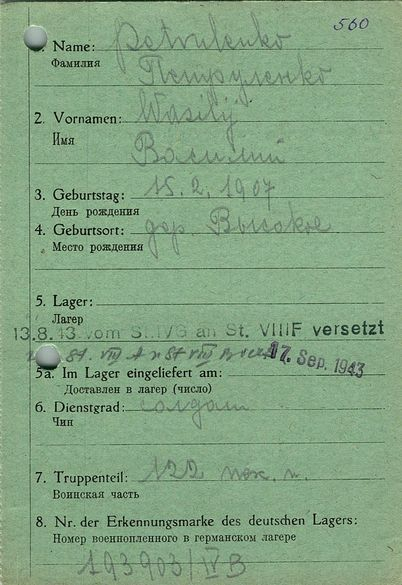 560
1. Name: Petrulenko
Фамилия Петруленко
2. Vornamen: Wasilij
Имя
Василий
3. Geburtstag: 15. 2. 1907
День рождения
4. Geburtsort: дер. Высокое
Место рождения
5. Lager:
Лагер
13.8.43 vom St.IVG an St. VIIIF versetzt
St. VIII St VIII 17. Sep. 1943
5a. Im Lager eingeliefert am:
Доставлен в лагер (число)
6. Dienstgrad: солдат
Чин
7. Truppenteil: 122 п.
Воинская часть
8. Nr. der Erkennungsmarke des deutschen Lagers:
Номер военнопленного в германском лагере
193903/IV B